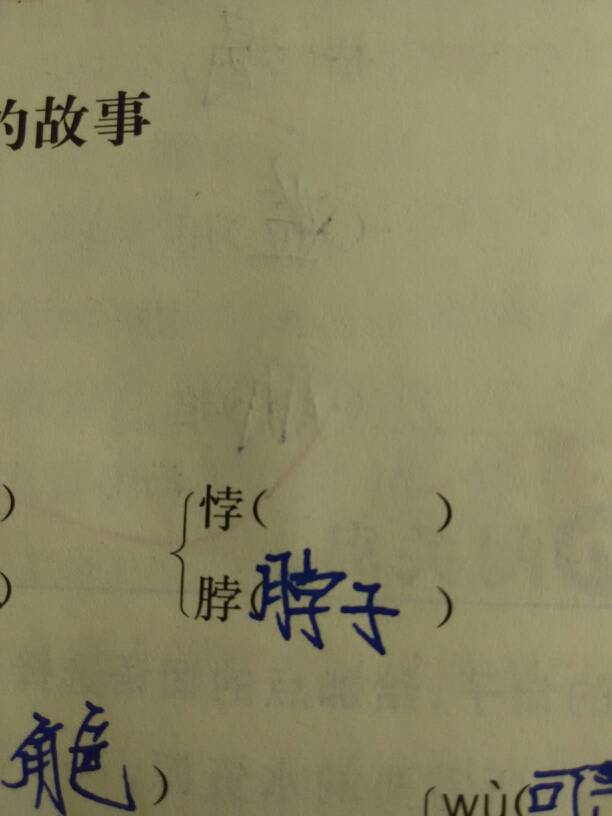 的故事
) 悖( )
) 脖(脖子)
)
(wù(可